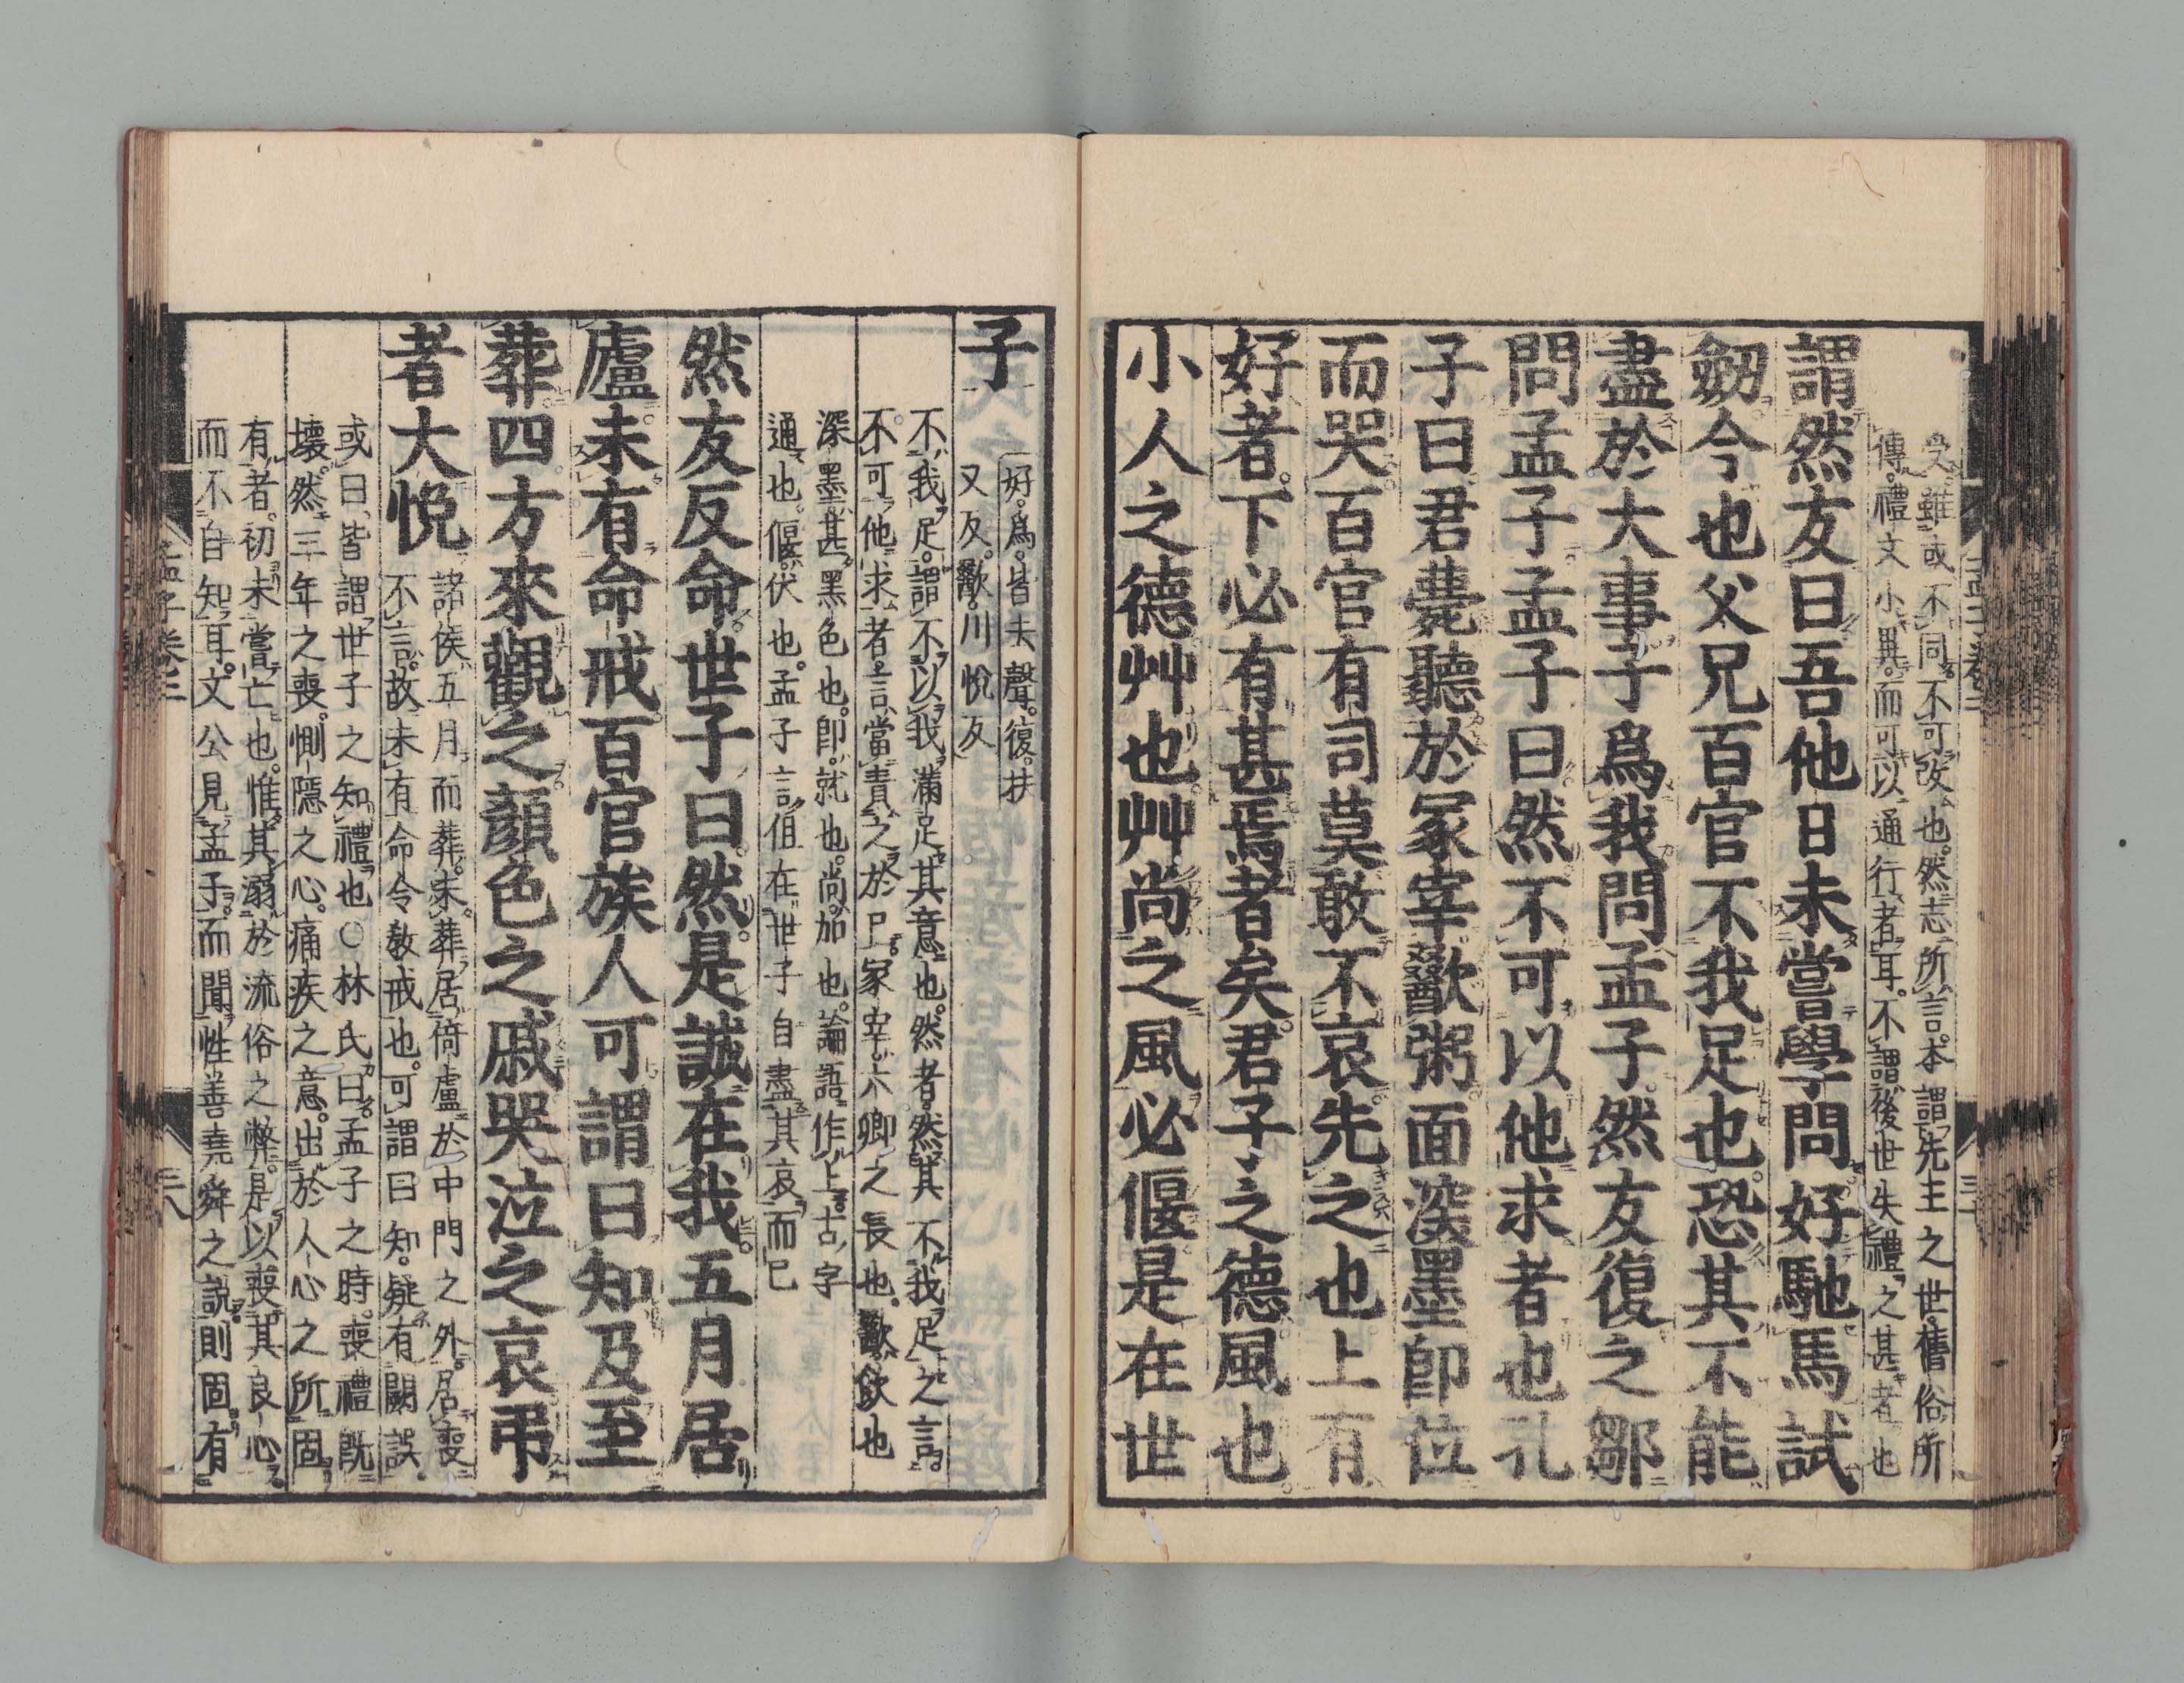 受雖或不同不可改也然志所言本謂先王之世舊俗所
傳禮文小異而可以通行者耳不謂後世失禮之甚者也
謂然友曰吾他日未嘗學問好馳馬試
劒今也父兄百官不我足也恐其不能
盡於大事子爲我問孟子然友復之鄒
問孟子孟子曰然不可以他求者也孔
子曰君薨聽於冢宰歠粥面深墨卽位
而哭百官有司莫敢不哀先之也上有
好者下必有甚焉者矣君子之德風也
小人之德艸也艸尚之風必偃是在世
子
好爲皆去聲復扶
又反歠川悅反
不我足謂不以我滿足其意也然者然其不我足之言
不可他求者言當責之於己冢宰六卿之長也歠飮也
深墨甚黑色也卽就也尚加也論語作上古字
通也偃伏也孟子言但在世子自盡其哀而已
然友反命世子曰然是誠在我五月居
廬未有命戒百官族人可謂曰知及至
葬四方來觀之顏色之戚哭泣之哀弔
者大悅
諸侯五月而葬未葬居倚廬於中門之外居喪
不言故未有命令敎戒也可謂曰知疑有闕誤
或曰皆謂世子之知禮也○林氏曰孟子之時喪禮旣
壞然三年之喪惻隱之心痛疾之意出於人心之所固
有者初未嘗亡也惟其溺於流俗之弊是以喪其良心
而不自知耳文公見孟子而聞性善堯舜之說則固有
孟子卷三
三八